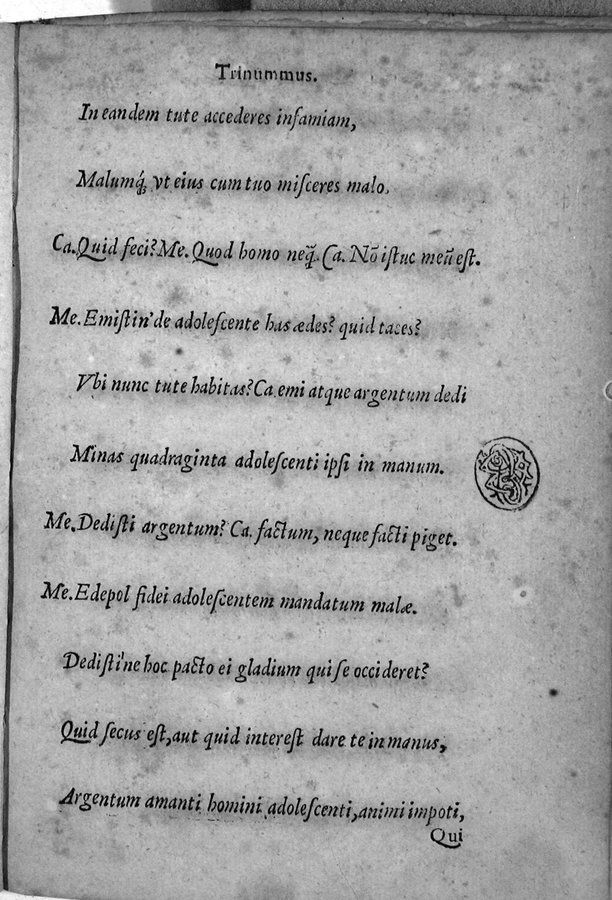 Trinummus.
In eandem tute accederes infamiam,
Malumq́; vt eius cum tuo miſceres malo.
Ca. Quid feci? Me. Quod homo neq̃. Ca. Nõ iſtuc meũ eſt.
Me. Emiſtin' de adoleſcente has ædes? quid taces?
Vbi nunc tute habitas? Ca. emi atque argentum dedi
Minas quadraginta adoleſcenti ipſi in manum.
Me. Dediſti argentum? Ca. factum, neque facti piget.
Me. Edepol fidei adoleſcentem mandatum malæ.
Dediſti'ne hoc pacto ei gladium qui ſe occideret?
Quid ſecus eſt, aut quid intereſt dare te in manus,
Argentum amanti homini adoleſcenti, animi impoti,
Qui